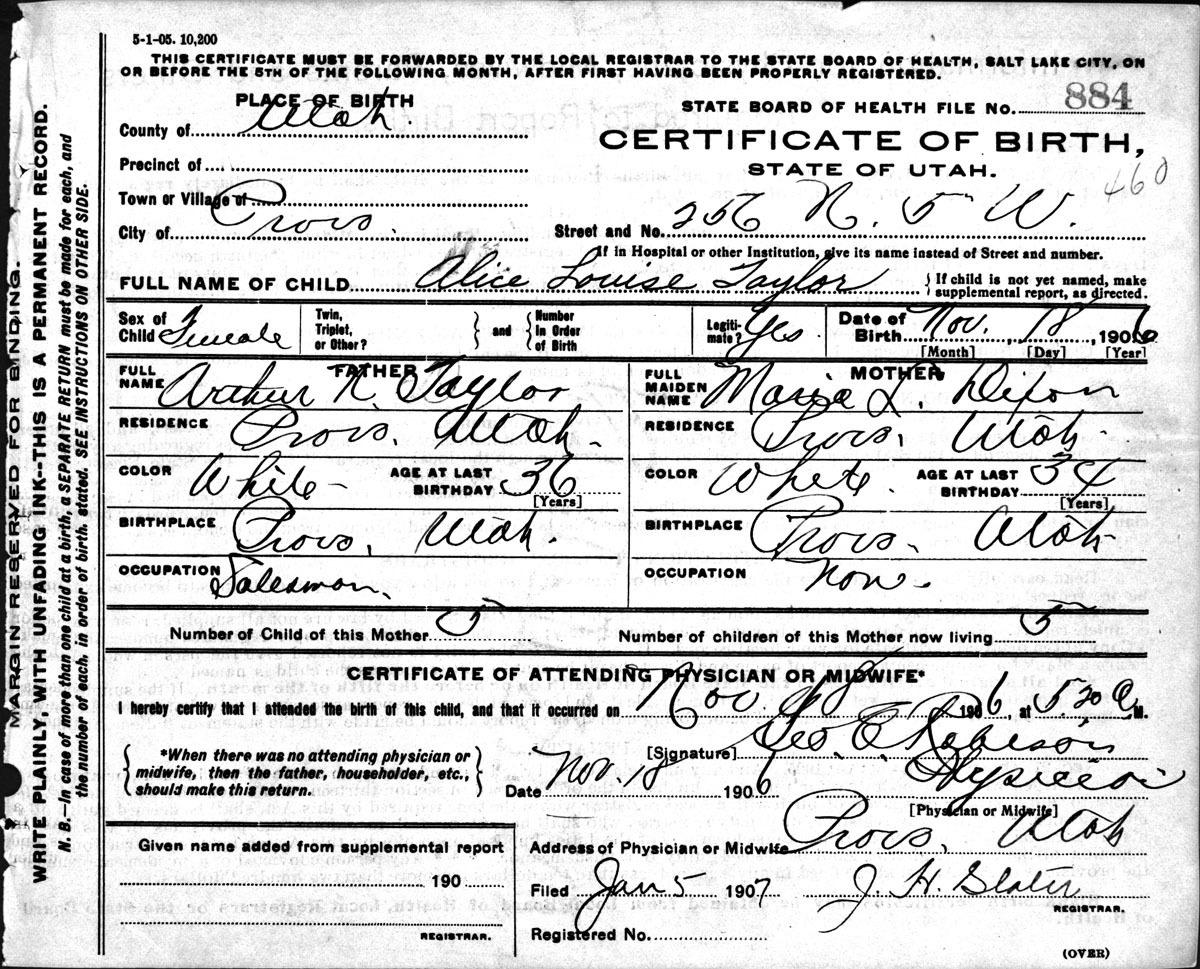 5-1-05. 10,200
THIS CERTIFICATE MUST BE FORWARDED BY THE LOCAL REGISTRAR TO THE STATE BOARD OF HEALTH, SALT LAKE CITY, ON
OR BEFORE THE 5TH OF THE FOLLOWING MONTH, AFTER FIRST HAVING BEEN PROPERLY REGISTERED.
PLACE OF BIRTH
STATE BOARD OF HEALTH FILE NO. 884
County of Utah
CERTIFICATE OF BIRTH,
STATE OF UTAH.
460
Precinct of
Town or Village of
City of Provo.
Street and No. 256 N. 5 W.
If in Hospital or other Institution, give its name instead of Street and number.
FULL NAME OF CHILD Alice Louise Taylor
If child is not yet named, make
supplemental report, as directed.
Sex of Child Female
Twin, Triplet, or Other?
and
Number In Order of Birth
Legiti-mate? Yes
Date of Birth Nov. 18, 1906
[Month] [Day] [Year]
FATHER
FULL NAME Arthur N. Taylor
RESIDENCE Provo, Utah.
COLOR White
AGE AT LAST BIRTHDAY 36
[Years]
BIRTHPLACE Provo, Utah.
OCCUPATION Salesman.
MOTHER
FULL MAIDEN NAME Maria L. Dixon
RESIDENCE Provo, Utah.
COLOR White.
AGE AT LAST BIRTHDAY 34
[Years]
BIRTHPLACE Provo. Utah
OCCUPATION None.
Number of Child of this Mother 5
Number of children of this Mother now living 5
CERTIFICATE OF ATTENDING PHYSICIAN OR MIDWIFE*
I hereby certify that I attended the birth of this child, and that it occurred on Nov. 18, 1906, at 5 30 A. M.
*When there was no attending physician or
midwife, then the father, householder, etc.,
should make this return.
[Signature] Geo. E. Robison
Physician
Date Nov. 18 1906
[Physician or Midwife]
Address of Physician or Midwife Provo, Utah
Given name added from supplemental report
190
REGISTRAR.
Filed Jan 5 1907
J. H. Slater
REGISTRAR.
Registered No.
(OVER)
MARGIN RESERVED FOR BINDING.
WRITE PLAINLY, WITH UNFADING INK--THIS IS A PERMANENT RECORD.
N. B.--In case of more than one child at a birth, a SEPARATE RETURN must be made for each, and
the number of each, in order of birth, stated. SEE INSTRUCTIONS ON OTHER SIDE.